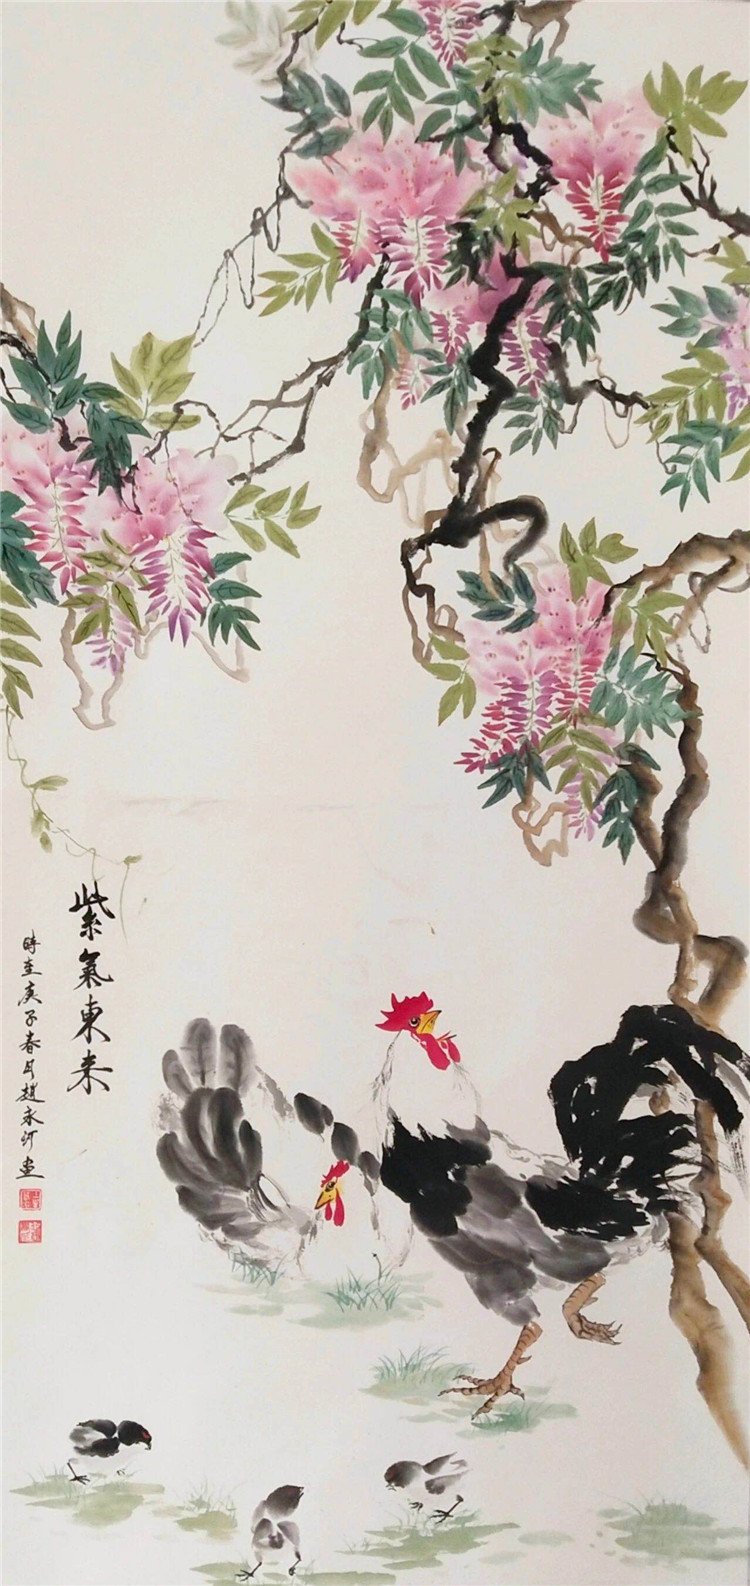 紫氣東来
時在庚子春月趙永河畫